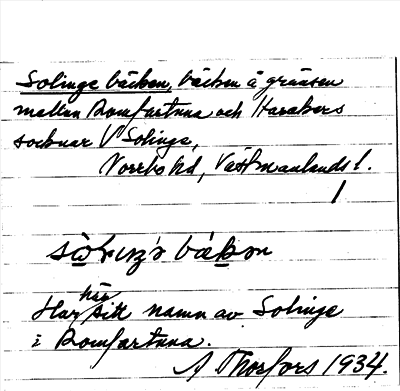 Solinge bäcken, bäcken å gränsen
mellan Romfartuna och Harakers
socknar V Solinge,
Norrbo hd, Västmanlands l.
här
Har sitt namn av Solinge
i Romfartuna.
A Thorfors 1934.